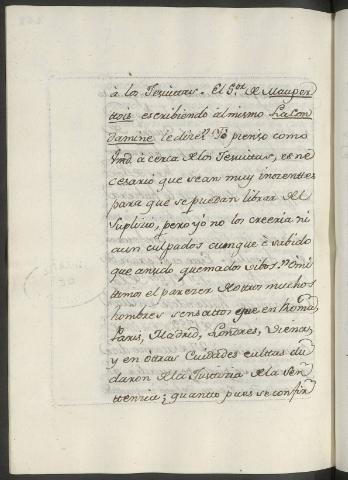 à los Jesuitas. El S.or de Mauper
tuis escribiendo al mismo La Con
damine le dice: Yo pienso como
Vmd. à cerca de los Jesuitas, es ne
cesario que sean muy inozentes
para que se puedan librar del
Suplizio, pero yo no los creeria ni
aun culpados aunque è sabido
que an sido quemados vibos.
timos el parezer de otros muchos
hombres sensattos que en Roma,
Paris, Madrid, Londres, Viena,
y en otras Ciudades cultas du
daron de la Justizia de la Sen
ttenzia; quanto pues se confir